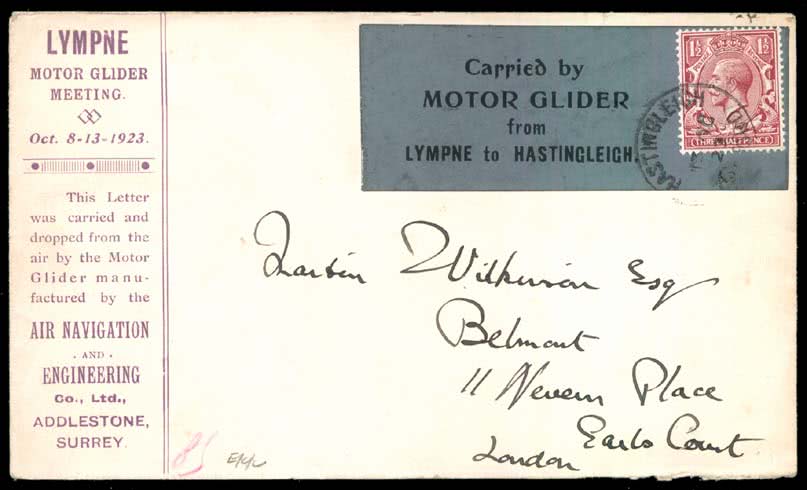 LYMPNE
MOTOR GLIDER
MEETING.
Oct. 8-13-1923.
This Letter
was carried and
dropped from the
air by the Motor
Glider manu-
factured by the
AIR NAVIGATION
- AND -
ENGINEERING
Co., Ltd.,
ADDLESTONE,
SURREY.
Carried by
MOTOR GLIDER
from
LYMPNE to HASTINGLEIGH.
1½ 1½
THREE HALFPENCE
HASTINGLEIGH
Wilkinson Esq
Belmont
11 Nevern Place
Earls Court
London